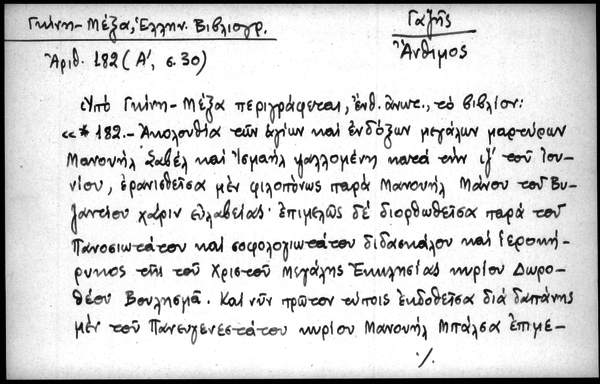 Γκίνη - Μέξα, Ἑλλην. Βιβλιογρ.
Γαζῆς
Ἄνθιμος
Ἀριθ. 182 (Α΄, σ. 30)
Ὑπό Γκίνη - Μέξα περιγράφεται, ἐνθ. ἀνωτ., τό βιβλίον:
«* 182.- Ἀκολουθία τῶν ἁγίων καί ἐνδόξων μεγάλων μαρτύρων
Μανουήλ Σαβέλ καί Ἰσμαήλ ψαλλομένη κατά τήν ιζ΄ τοῦ Ἰου-
νίου, ἐρανισθεῖσα μέν φιλοπόνως παρά Μανουήλ Μάνου τοῦ Βυ-
ζαντίου χάριν εὐλαβείας· ἐπιμελῶς δέ διορθωθεῖσα παρά τοῦ
Πανοσιωτάτου καί σοφολογιωτάτου διδασκάλου καί ἱεροκή-
ρυκος τῆς τοῦ Χριστοῦ Μεγάλης Ἐκκλησίας κυρίου Δωρο-
θέου Βουλησμᾶ. Καί νῦν πρῶτον τύποις ἐκδοθεῖσα διά δαπάνης
μέν τοῦ Πανευγενεστάτου κυρίου Μανουήλ Μπάλσα ἐπιμε-
./.